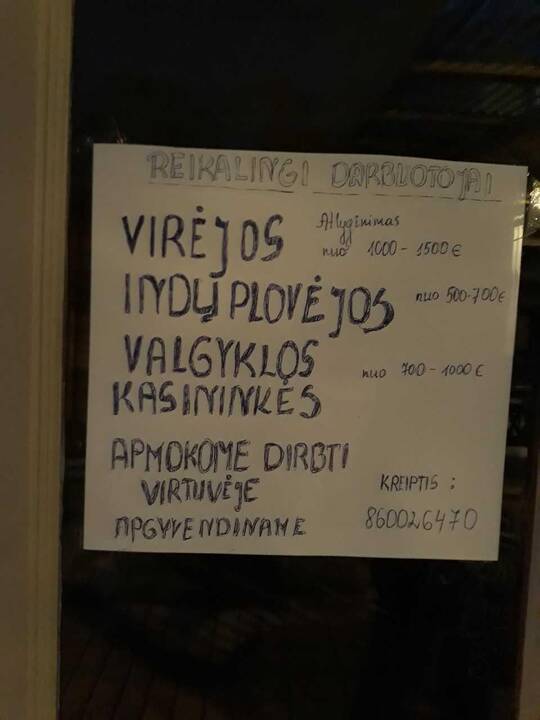 REIKALINGI DARBUOTOJAI
VIRĖJOS Atlyginimas
nuo 1000 - 1500 €
INDŲ PLOVĖJOS nuo 500-700€
VALGYKLOS nuo 700 - 1000 €
KASININKĖS
APMOKOME DIRBTI
VIRTUVĖJE KREIPTIS :
APGYVENDINAME 860026470